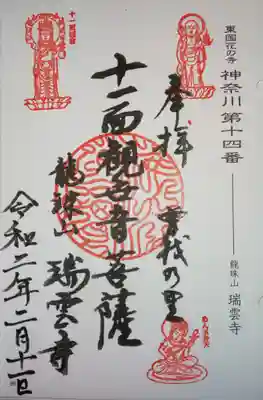 東国花の寺
神奈川 第十四番
龍珠山 瑞雲寺
奉拝
曽我の里
十一面観世音菩薩
龍珠山
瑞雲寺
令和二年二月十一日
十一面観音